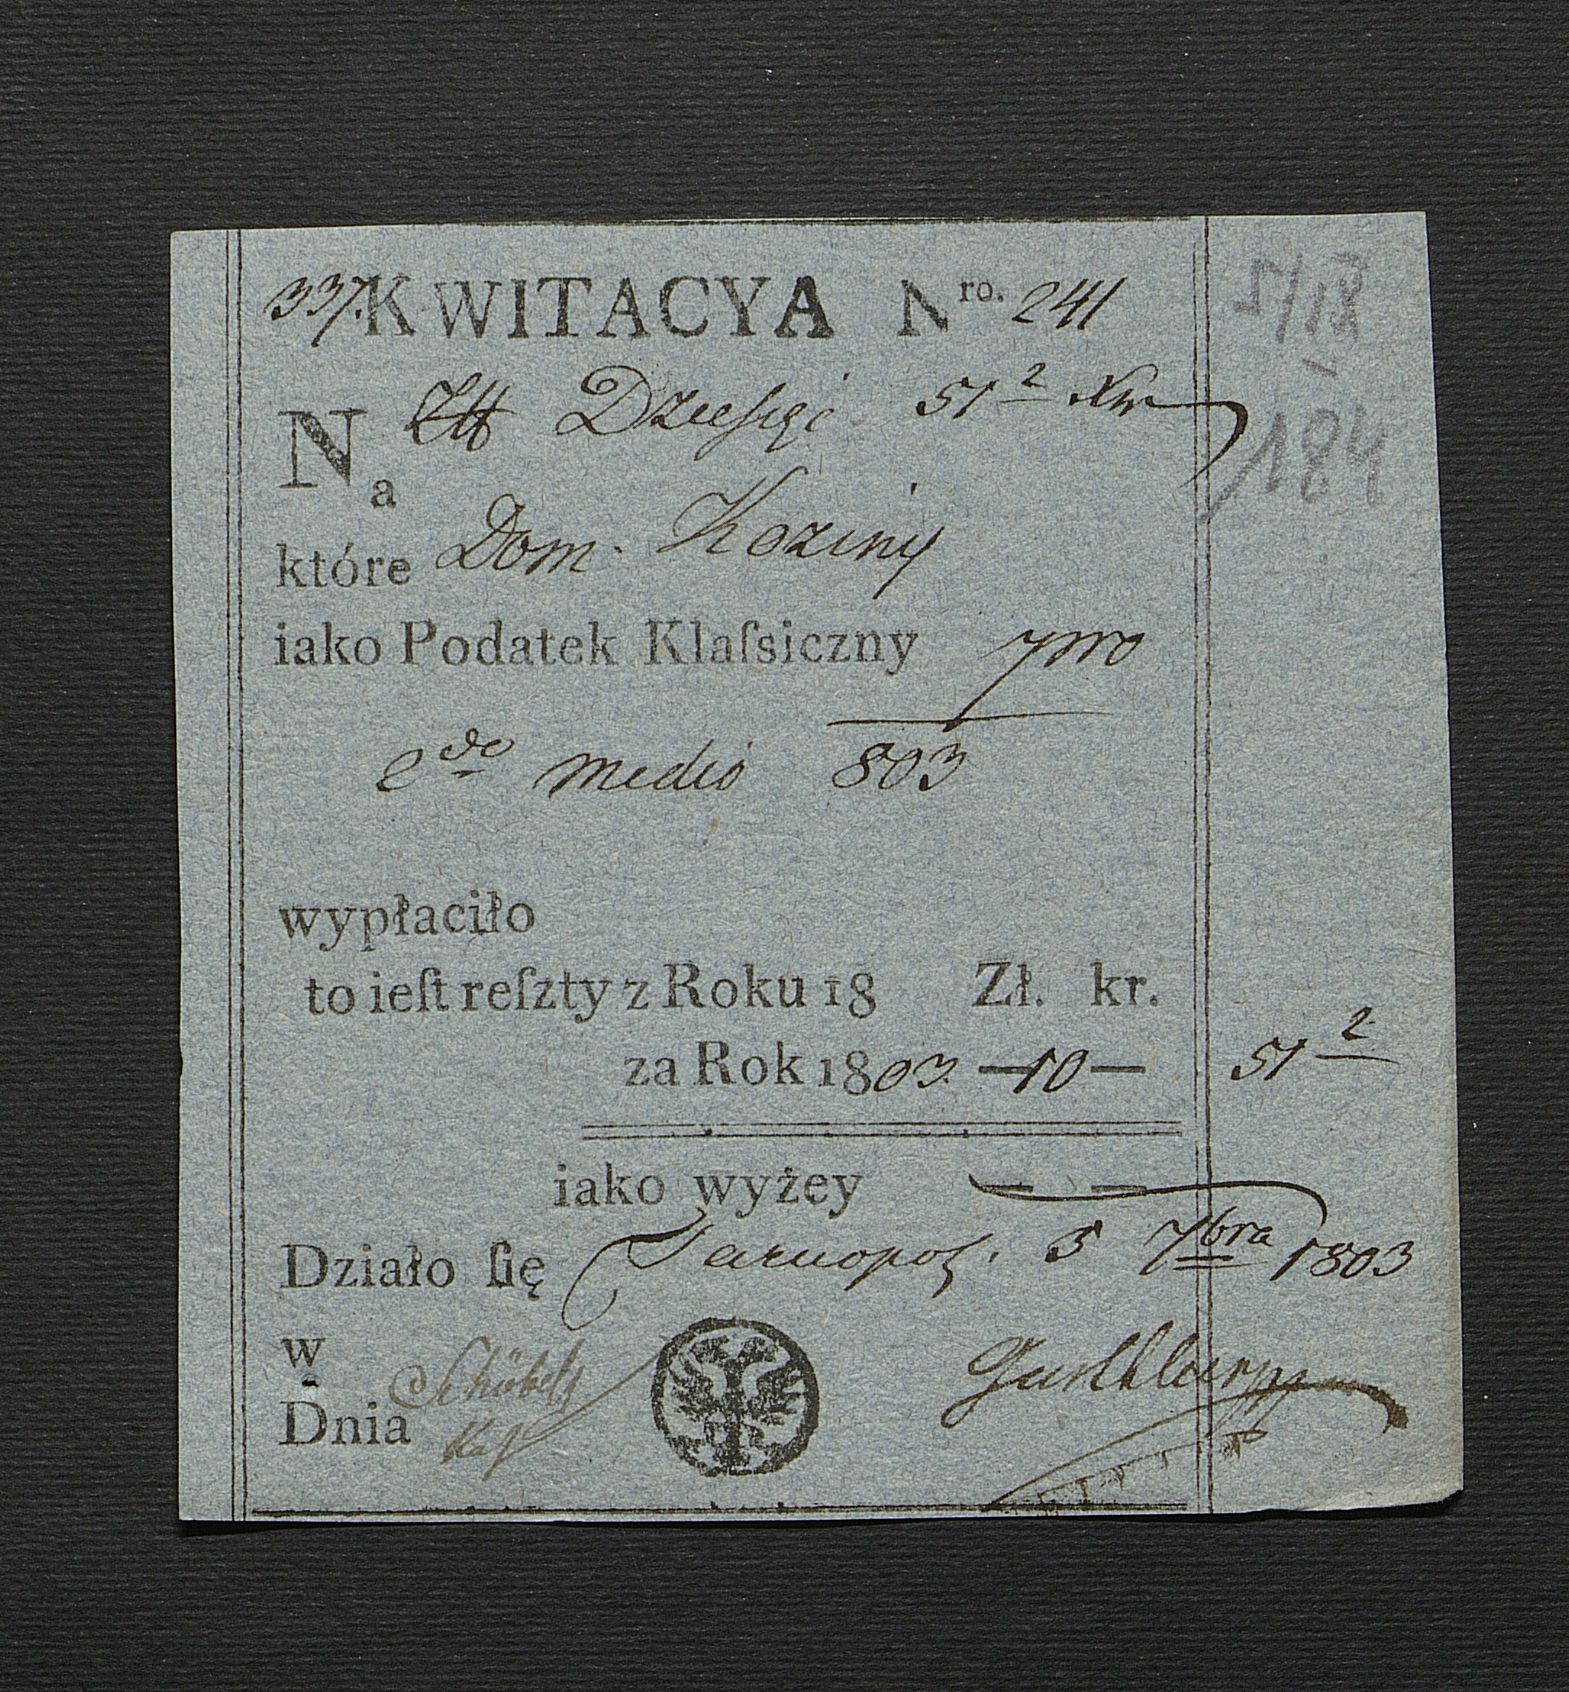 337. KWITACYA Nro. 241
Na Dziesięć 51 2 Xr
które Dom. Koziny
iako Podatek Klaſsiczny pro
2do medio 803
wypłaciło
to ieſt reſzty z Roku 18 Zł. kr.
za Rok 1803. — 10 — 51 2
iako wyżey — —
Działo ſię Tarnopol. 5 7bra 1803
w
Dnia
184